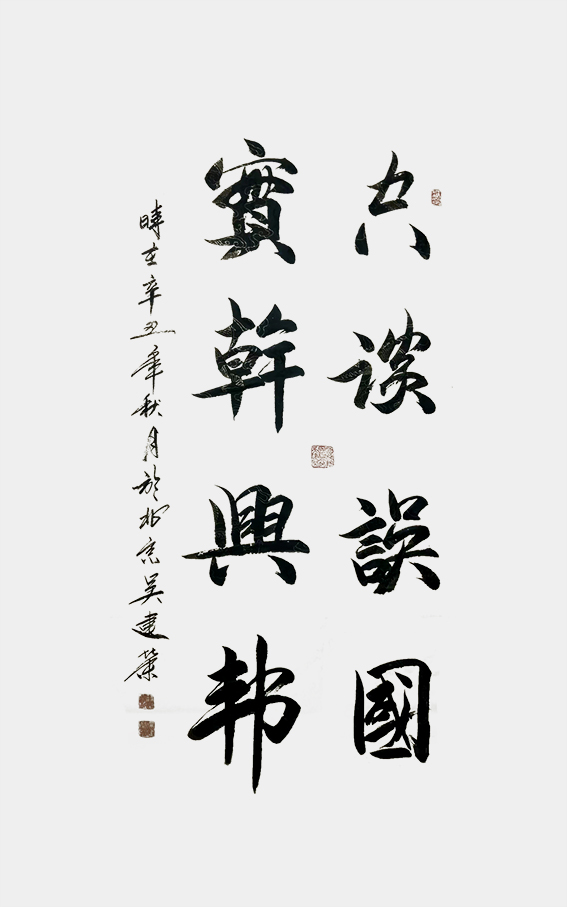 空談誤國
實幹興邦
時在辛丑年秋月於北京吳建